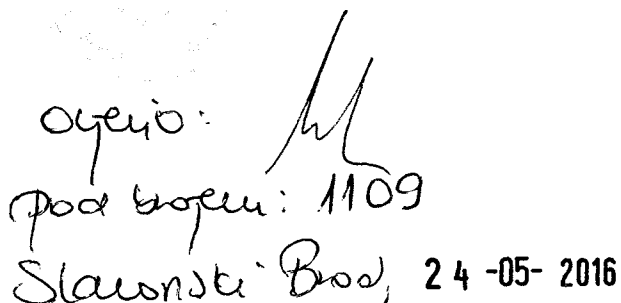 ocijenio:
pod brojem: 1109
Slavonski Brod, 24 -05- 2016